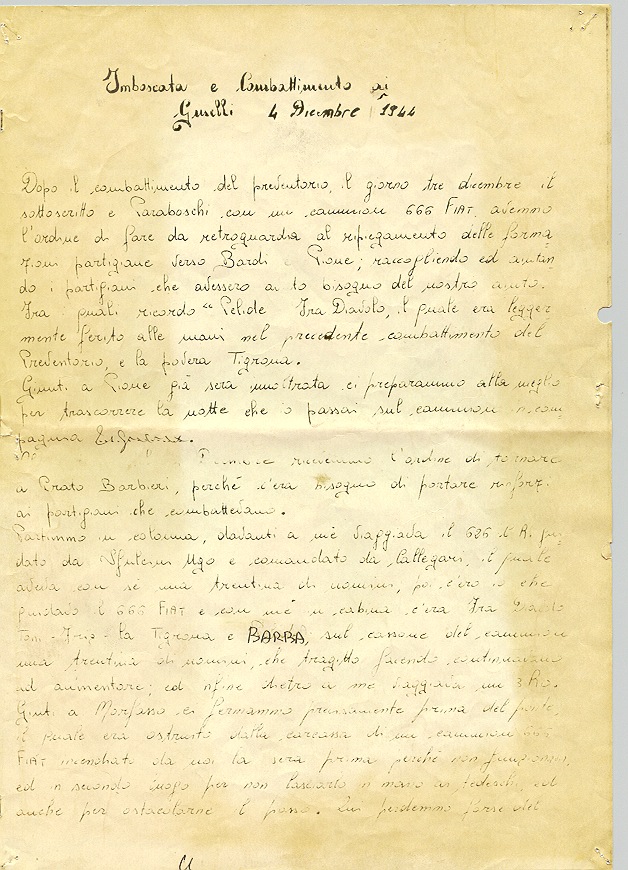 Imboscata e Combattimento ai
Guselli 4 Dicembre 1944
Dopo il combattimento del preventorio, il giorno tre dicembre il
sottoscritto e Paraboschi con un cammion 666 FIAT avemmo
l'ordine di fare da retroguardia al ripiegamento delle forma
zioni partigiane verso Bardi e Pione; raccogliendo ed aiutan
do i partigiani che avessero avuto bisogno del nostro aiuto.
Fra i quali ricordo "Pelide Fra Diavolo, il quale era legger
mente ferito alle mani nel precedente combattimento del
Preventorio, e la povera Tigrona.
Giunti a Pione già sera inoltrata ci preparammo alla meglio
per trascorrere la notte che io passai sul cammion in com
pagnia
ricevemmo l'ordine di tornare
a Prato Barbieri, perché c'era bisogno di portare rinforzi
ai partigiani che combattevano.
Partimmo in colonna, davanti a me viaggiava il 626 gui
dato da Ugo e comandato da Callegari, il quale
aveva con sé una trentina di uomini, poi c'ero io che
guidavo il 666 FIAT e con me in cabina c'era Fra Diavolo
la Tigrona e BARBA, sul cassone del cammion
una trentina di uomini, che tragitto facendo continuavano
ad aumentare; ed infine dietro a me viaggiava un 3 Ro.
Giunti a Morfasso ci fermammo precisamente prima del ponte,
il quale era ostruito dalla carcassa di un cammion 666
FIAT incendiato da noi la sera prima perché non funzionava,
ed in secondo luogo per non lasciarlo in mano ai tedeschi, ed
anche per ostacolarne il passo. Qui perdemmo forse del